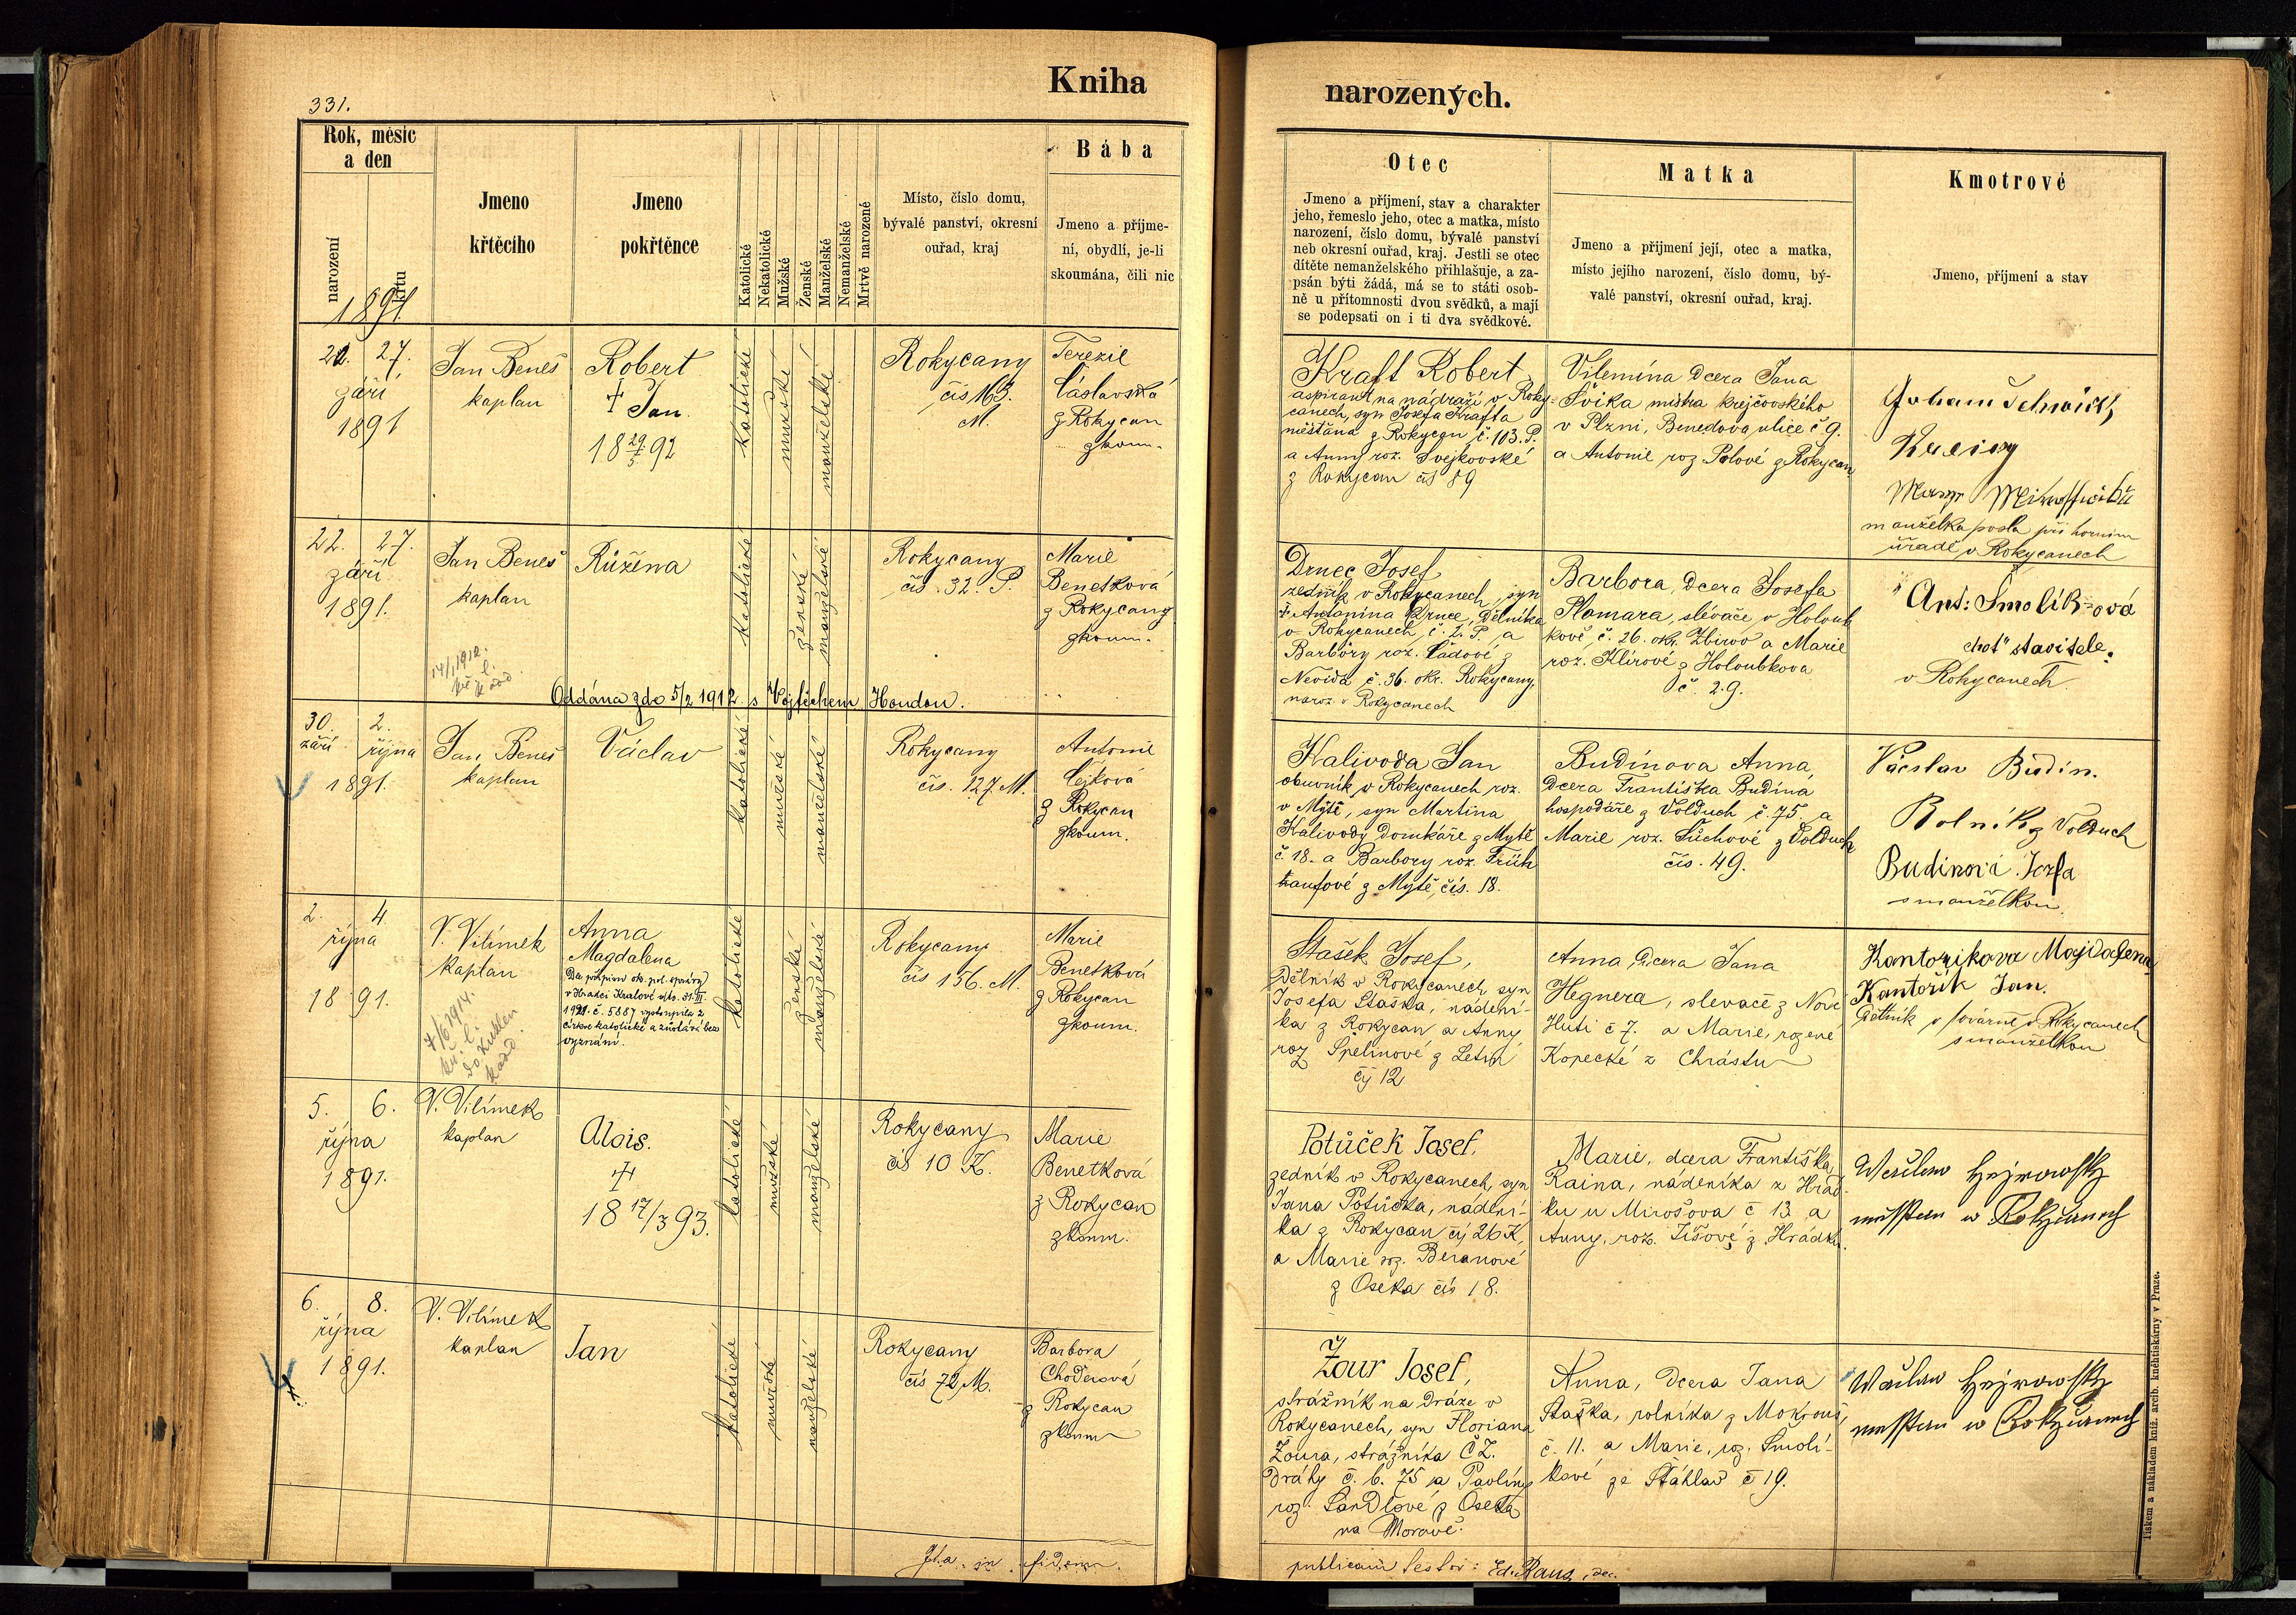 Kniha
narozených.
331.
Rok, měsíc
a den
narození
křtu
1891
Jmeno
křtěcího
Jmeno
pokřtěnce
Katolické
Nekatolické
Mužské
Ženské
Manželské
Nemanželské
Mrtvě narozené
Místo, číslo domu,
bývalé panství, okresní
ouřad, kraj
Bába
Jmeno a příjme-
ní, obydlí, je-li
skoumána, čili nic
Otec
Jmeno a příjmení, stav a charakter
jeho, řemeslo jeho, otec a matka, místo
narození, číslo domu, bývalé panství
neb okresní ouřad, kraj. Jestli se otec
dítěte nemanželského přihlašuje, a za-
psán býti žádá, má se to státi osob-
ně u přítomnosti dvou svědků, a mají
se podepsati on i ti dva svědkové.
Matka
Jmeno a přijmení její, otec a matka,
místo jejího narození, číslo domu, bý-
valé panství, okresní ouřad, kraj.
Kmotrové
Jmeno, příjmení a stav
27.
září
1891
Jan Beneš
kaplan
Robert
† Jan.
18 29/5 92
katolické
mužské
manželské
Rokycany
čís 163.
M.
Terezie
Čáslavská
z Rokycan
zkoum.
Kraft Robert
aspirant na nádraží v Roky-
canech, syn Josefa Krafta
měšťana z Rokycan č. 103. P.
a Anny roz. Svejkovské
z Rokycan čís 89
Vilemína dcera Jana
Švika mistra krejčovského
v Plzni, Benedova ulice č 9.
a Antonie roz Polové z Rokycan
manželka posla při horním
úřadě v Rokycanech
22. 27.
září
1891.
Jan Beneš
kaplan
Růžena
katolické
ženské
manželské
Rokycany
čís. 32. P.
Marie
Benetková
z Rokycany
zkoum.
Drnec Josef
zedník v Rokycanech, syn
† Antonína Drnce, dělníka
v Rokycanech, č. 2. P. a
Barbory roz. Ládové z
Nevida č. 36. okr. Rokycany,
naroz. v Rokycanech
Barbora, dcera Josefa
Plomara, slévače v Holoub
kově č. 26. okr. Zbirov a Marie
roz. Klírové z Holoubkova
č. 29.
Ant: Smolík-ová
choť stavitele.
v Rokycanech
14/1 1912.
Oddána zde 5/2 1912 s Vojtěchem Houdou.
30. 2.
září října
1891.
Jan Beneš
kaplan
Václav
katolické
mužské
manželské
Rokycany
čís. 127. M.
Antonie
Cejková
z Rokycan
zkoum.
Kalivoda Jan
obuvník v Rokycanech roz.
v Mýtě, syn Martina
Kalivody domkáře z Mýtě
č. 18. a Barbory roz. Früh
haufové z Mýtě čís. 18.
Budínova Anna,
dcera Františka Budína
hospodáře z Volduch č. 75. a
Marie roz. Suchové z Volduch
čís. 49.
Václav Budín.
Rolník z Volduch
Budinová Jozfa
s manželkou
2. 4
října
1891.
V. Vilímek
kaplan
Anna
Magdalena
Dle přípisu ok. pol. správy
v Hradci Králové ze 31. III.
1921. č. 5887 vystoupila z
církve katolické a zůstává bez
vyznání.
7/6 1914.
katolické
ženské
manželské
Rokycany
čís 156. M.
Marie
Benetková
z Rokycan
zkoum.
Stašek Josef,
dělník v Rokycanech, syn
Josefa Staška, nádení-
ka z Rokycan a Anny
roz Špelinové z Letin
čj 12
Anna, dcera Jana
Hegnera, slevače z Nové
Huti č 7. a Marie, rozené
Kopecké z Chrástu
Kantorikova Majdalena
Kantořík Jan.
dělník v továrně v Rokycanech
s manželkou
5. 6.
října
1891.
V. Vilímek
kaplan
Alois.
†
18 17/3 93.
katolické
mužské
manželské
Rokycany
čís 10 K.
Marie
Benetková
z Rokycan
zkoum.
Potůček Josef,
zedník v Rokycanech, syn
Jana Potůčka, nádení-
ka z Rokycan čj 26 K,
a Marie roz. Beranové
z Oseka čís 18.
Marie, dcera Františka
Raina, nádeníka z Hrád
ku u Mirošova č 13 a
Anny, roz. Jíšové z Hrádku.
6. 8.
října
1891.
V. Vilímek
kaplan
Jan
katolické
mužské
manželské
Rokycany
čís 72 M.
Barbora
Choderová
z Rokycan
zkoum
Žour Josef,
strážník na dráze v
Rokycanech, syn Floriana
Žoura, strážníka Č. Z.
dráhy č. b. 75 a Pavlíny
roz. Šandlové z Oseka
na Moravě.
Anna, dcera Jana
Staška, rolníka z Mokrouš,
č. 11. a Marie, roz. Smolí-
kové ze Štáhlav č 19.
Ita in fidem
publicam testor: Ed. Raus, dec.
Tiskem a nákladem kníž. arcib. kněhtiskárny v Praze.